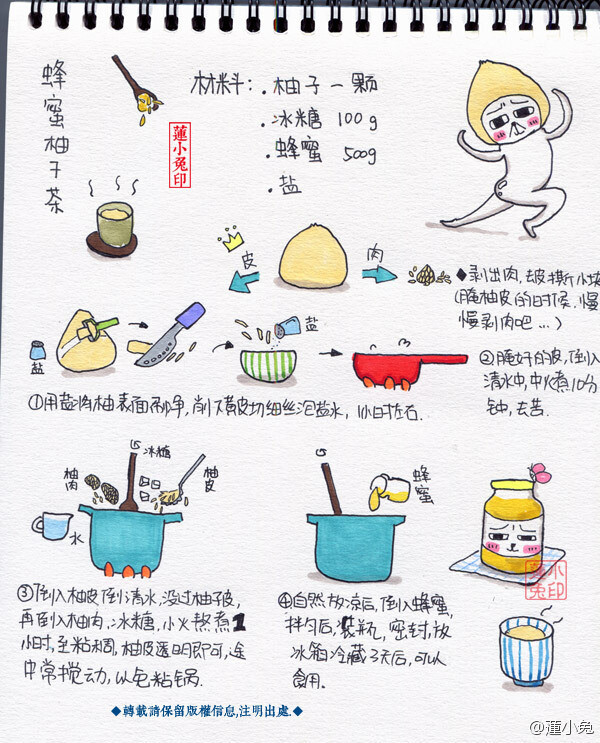 蜂蜜柚子茶
材料:
·柚子一颗
·冰糖 100g
·蜂蜜 500g
·盐
蓮小兔印
皮
肉
◆剥出肉,去皮撕小块
(腌柚皮的时候,慢
慢剥肉吧...)
盐
盐
①用盐将柚表面刷净,削下黄皮切细丝泡盐水,1小时左右.
②腌好的皮,倒入
清水中,中火煮10分
钟,去苦.
冰糖
柚肉
柚皮
水
蜂蜜
③倒入柚皮,倒清水,没过柚子皮,
再倒入柚肉,冰糖,小火熬煮1
小时,至粘稠,柚皮透明即可,途
中常搅动,以免粘锅.
④自然放凉后,倒入蜂蜜,
拌匀后,装瓶,密封,放
冰箱冷藏3天后,可以
食用.
蓮小兔印
◆轉載請保留版權信息,注明出處.◆
@蓮小兔